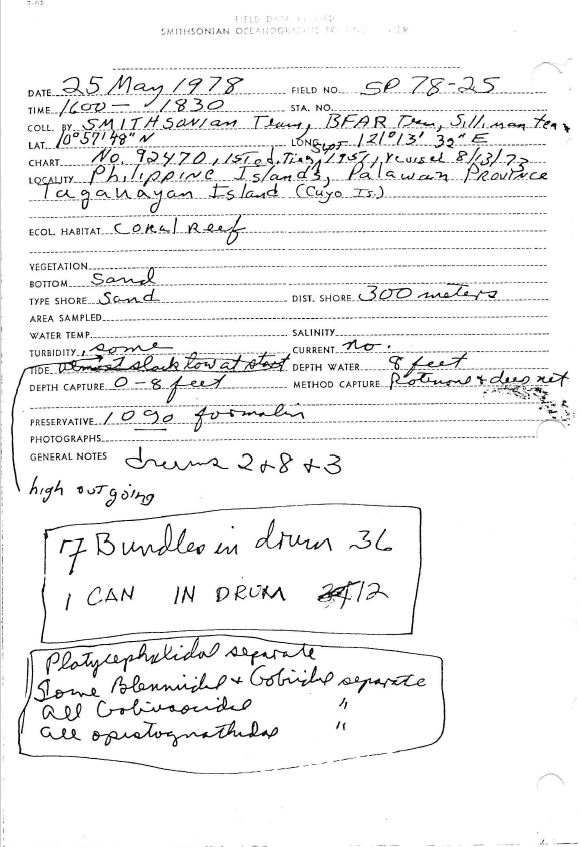 7-05
FIELD DATA RECORD
SMITHSONIAN OCEANOGRAPHIC SORTING CENTER
DATE 25 May 1978 FIELD NO. SP 78-25
TIME 1600 - 1830 STA. NO.
COLL. BY SMITHSONIAN Team, BFAR Team, Silliman team
LAT. 10°57'48" N LONG. 121°13' 32" E
CHART No. 92470, 1st ed., 1957, revised 8/13/73
LOCALITY Philippine Islands, Palawan Province
Taganayan Island (Cuyo Is.)
ECOL. HABITAT Coral Reef
VEGETATION
BOTTOM Sand
TYPE SHORE Sand DIST. SHORE 300 meters
AREA SAMPLED
WATER TEMP. SALINITY
TURBIDITY some CURRENT no.
TIDE almost slack low at start DEPTH WATER 8 feet
DEPTH CAPTURE 0-8 feet METHOD CAPTURE Rotenone + dip net
PRESERVATIVE 10% formalin
PHOTOGRAPHS
GENERAL NOTES drums 2+8+3
high outgoing
17 Bundles in drum 36
1 CAN IN DRUM 12
Platycephalidae separate
Some Blenniidae + Gobiidae separate
all Gobiesocidae "
all opistognathidae "